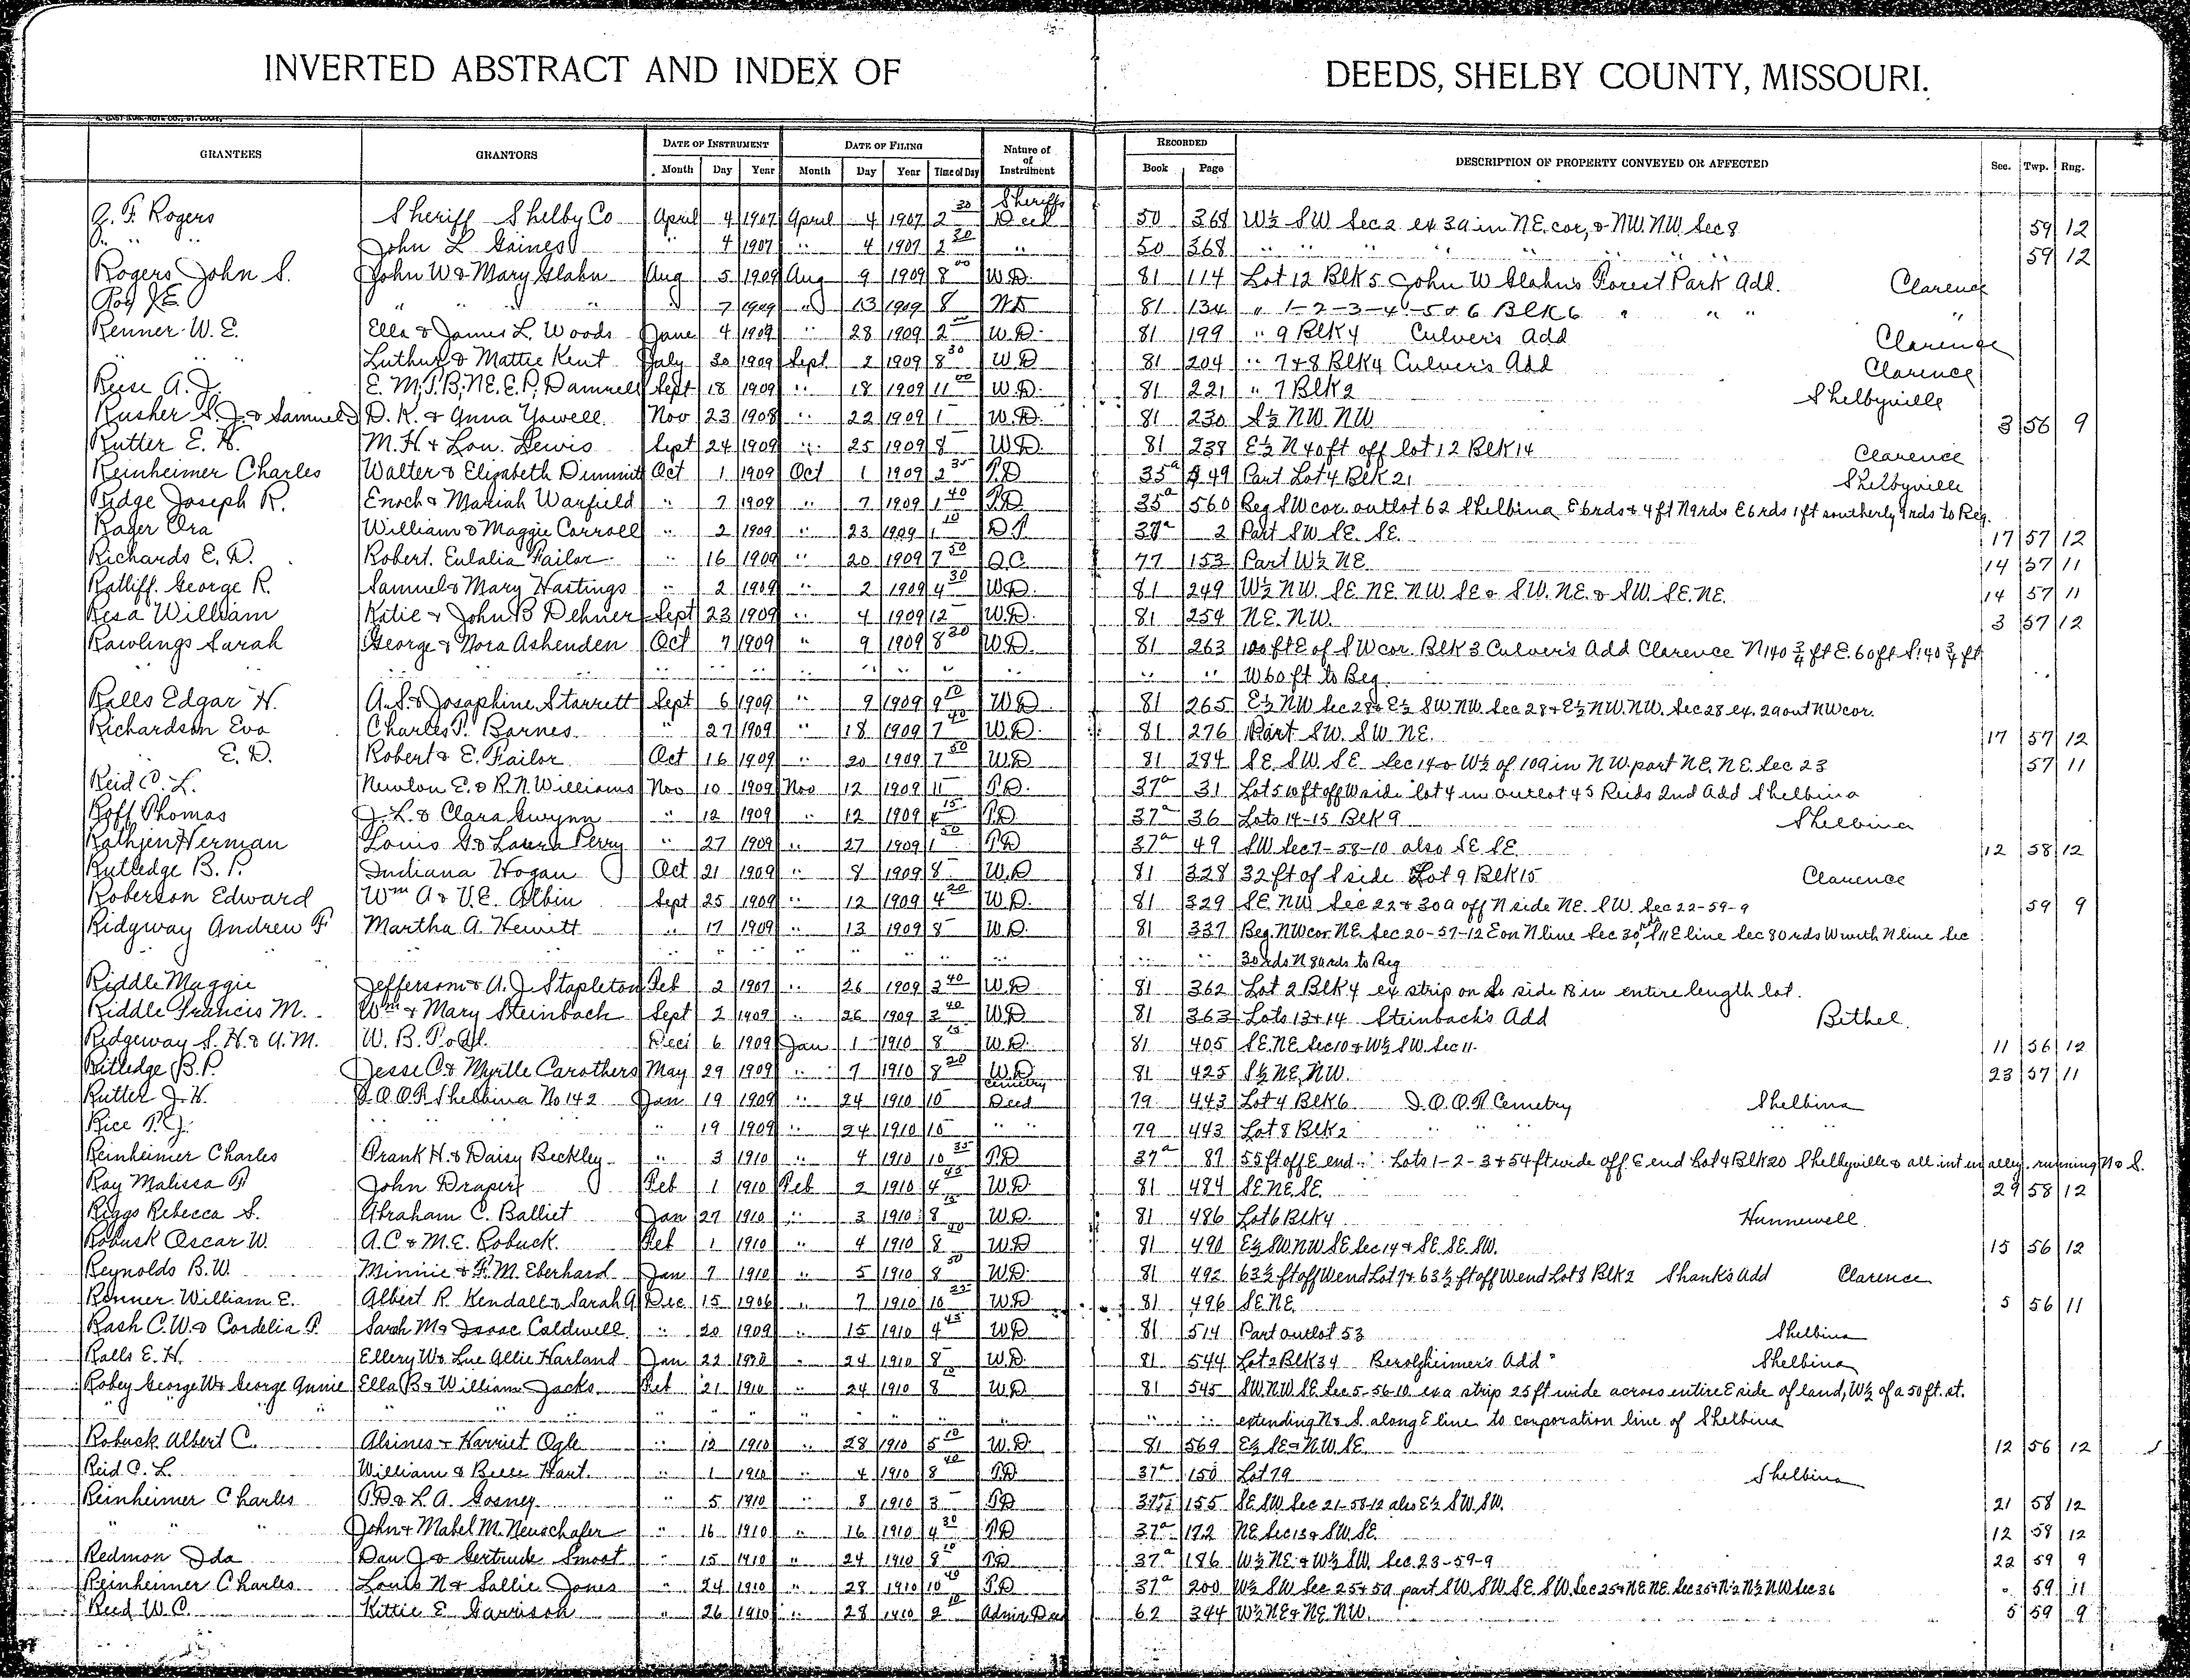 INVERTED ABSTRACT AND INDEX OF DEEDS, SHELBY COUNTY, MISSOURI.
GRANTEES GRANTORS DATE OF INSTRUMENT DATE OF FILING Nature of Instrument RECORDED DESCRIPTION OF PROPERTY CONVEYED OR AFFECTED Sec. Twp. Rng.
Month Day Year Month Day Year Time of Day Book Page
G. F. Rogers Sheriff Shelby Co April 4 1907 April 4 1907 2 30 Sheriffs Deed 50 368 W½ SW Sec 2 ex 3a in NE. cor, & NW. NW. Sec 8 59 12
" " " John L Gaines " 4 1907 " 4 1907 2 30 " 50 368 " " " " " 59 12
Rogers John S. John W & Mary Glahn Aug 5 1909 Aug 9 1909 8 00 W.D. 81 114 Lot 12 Blk 5 John W Glahn's Forest Park Add. Clarence
" " " 7 1909 " 13 1909 8 WD 81 134 " 1-2-3-4-5 & 6 Blk 6 " " " "
Renner W. E. Ella & James L. Woods June 4 1909 " 28 1909 2 W.D. 81 199 " 9 Blk 4 Culver's Add Clarence
" " " Luthur & Mattie Kent July 30 1909 Sept 2 1909 8 30 W.D 81 204 " 7 & 8 Blk 4 Culver's Add Clarence
Reese A. J. E. M, J. B, N.E. E. P, Damrell Sept 18 1909 " 18 1909 11 00 W.D. 81 221 " 7 Blk 2 Shelbyville
Rusher S. J. & Samuel D. K. & Anna Yowell Nov 23 1908 " 22 1909 1 W.D. 81 230 S½ NW. NW 3 56 9
Rutter E. H. M. H. & Lou. Lewis Sept 24 1909 " 25 1909 8 W.D. 81 238 E½ N 40 ft off lot 12 Blk 14 Clarence
Reinheimer Charles Walter & Elizabeth Dimmitt Oct 1 1909 Oct 1 1909 2 35 T.D 35a 549 Part Lot 4 Blk 21 Shelbyville
Ridge Joseph R. Enoch & Mariah Warfield " 7 1909 " 7 1909 1 40 T.D 35a 560 Beg SW cor. outlot 62 Shelbina E 6rds & 4 ft N 9rds E 6 rds 1 ft southerly 9rds to Beg.
Rager Ora William & Maggie Carroll " 2 1909 " 23 1909 1 10 D.T. 37a 2 Part SW. SE. SE. 17 57 12
Richards E. D. Robert. Eulalia Failor " 16 1909 " 20 1909 7 50 Q.C. 77 153 Part W½ NE 14 57 11
Ratliff. George R. Samuel & Mary Hastings " 2 1909 " 2 1909 4 30 W.D. 81 249 W½ NW. SE. NE. NW. SE & SW. NE. & SW. SE. NE. 14 57 11
Resa William Katie & John B Dehner Sept 23 1909 " 4 1909 12 W.D. 81 254 NE. NW. 3 57 12
Rawlings Sarah George & Nora Ashenden Oct 7 1909 " 9 1909 8 20 W.D. 81 263 100 ft E of SW cor. Blk 3 Culver's Add Clarence N 140 ¾ ft E. 60 ft S. 140 ¾ ft
" " " " " " " " " W 60 ft to Beg.
Ralls Edgar H. A. S. & Josephine Starrett Sept 6 1909 " 9 1909 9 10 W.D 81 265 E½ NW Sec 28 & E½ SW. NW. Sec 28 & E½ NW. NW. Sec 28 ex. 2a out NW cor.
Richardson Eva Charles T. Barnes " 27 1909 " 18 1909 7 40 W.D. 81 276 Part SW. SW. NE. 17 57 12
" E. D. Robert & E. Failor Oct 16 1909 " 20 1909 7 50 W.D 81 284 SE. SW. SE Sec 14 & W½ of 10a in NW. part NE. NE. Sec 23 57 11
Reid C. L. Newton E. & R. N. Williams Nov 10 1909 Nov 12 1909 11 T.D. 37a 31 Lot 5 10 ft off W side lot 4 in outlot 45 Reids 2nd Add Shelbina
Roff Thomas J. L. & Clara Gwynn " 12 1909 " 12 1909 4 15 T.D 37a 36 Lots 14-15 Blk 9 Shelbina
Rathjen Herman Louis G & Laura Perry " 27 1909 " 27 1909 1 50 T.D 37a 49 SW Sec 7-58-10 also SE. SE. 12 58 12
Rutledge B. P. Indiana Hogan Oct 21 1909 " 8 1909 8 W.D 81 328 32 ft of S side Lot 9 Blk 15 Clarence
Roberson Edward Wm A & V. E. Albin Sept 25 1909 " 12 1909 4 20 W.D. 81 329 SE. NW Sec 22 & 30a off N side NE. SW. Sec 22-59-9 59 9
Ridgway Andrew F Martha A. Hewitt " 17 1909 " 13 1909 8 W.D. 81 337 Beg. NW cor. NE. Sec 20-57-12 E on N line Sec 30rds S 11 E line Sec 80 rds W with N line Sec
" " " " " " 30 rds N 80 rds to Beg
Riddle Maggie Jefferson & A. J. Stapleton Feb 2 1907 " 26 1909 3 40 W.D 81 362 Lot 2 Blk 4 ex strip on So side 18 in entire length lot.
Riddle Francis M. Wm & Mary Steinbach Sept 2 1909 " 26 1909 3 40 W.D 81 363 Lots 13 & 14 Steinbach's Add Bethel.
Ridgeway S. H. & A. M. W. B. Dec 6 1909 Jan 1 1910 8 15 W.D. 81 405 SE. NE. Sec 10 & W½ SW. Sec 11. 11 56 12
Rutledge B. P. Jesse C. & Myrtle Carothers May 29 1909 " 7 1910 8 20 W.D 81 425 S½ NE, NW. 23 57 11
Rutter J. H. I.O.O.F. Shelbina No 142 Jan 19 1909 " 24 1910 10 Cemetry Deed 79 443 Lot 4 Blk 6 I. O. O. F. Cemetry Shelbina
Rice T. J. " " " 19 1909 " 24 1910 10 " " 79 443 Lot 8 Blk 2 " " " "
Reinheimer Charles Frank H. & Daisy Beckley " 3 1910 " 4 1910 10 35 T.D 37a 87 55 ft off E end " Lots 1-2-3 & 54 ft wide off E end Lot 4 Blk 20 Shelbyville & all int in alley. running N & S.
Ray Malissa F John Draper Feb 1 1910 Feb 2 1910 4 45 W.D 81 484 SE NE. SE. 29 58 12
Riggs Rebecca S. Abraham C. Balliet Jan 27 1910 " 3 1910 8 15 W.D. 81 486 Lot 6 Blk 4 Hunnewell
Robusk Oscar W. A. C & M. E. Robuck. Feb 1 1910 " 4 1910 8 30 W.D 81 490 E½ SW NW SE Sec 14 & SE. SE. SW. 15 56 12
Reynolds B. W. Minnie & F. M. Eberhard Jan 7 1910 " 5 1910 8 50 W.D. 81 492 63½ ft off W end Lot 7 & 63½ ft off W end Lot 8 Blk 2 Shank's Add Clarence
Renner William E. Albert R Kendall & Sarah A Dec 15 1906 " 7 1910 10 25 W.D 81 496 SE. NE. 5 56 11
Rash C. W. & Cordelia P. Sarah M & Isaac Caldwell " 20 1909 " 15 1910 4 45 W.D 81 514 Part outlot 53 Shelbina
Ralls E. H. Ellery W & Lue Allie Harland Jan 22 1910 " 24 1910 8 W.D. 81 544 Lot 2 Blk 34 Berolzheimer's Add " Shelbina
Robey George W & George Annie Ella B & William Jacks Feb 21 1910 " 24 1910 8 15 W.D 81 545 SW. NW SE Sec 5-56-10 ex a strip 25 ft wide across entire E side of land, W½ of a 50 ft. st.
" " " " " " " " extending N & S. along E line to corporation line of Shelbina
Robuck Albert C. Alsines & Harriet Ogle " 12 1910 " 28 1910 5 10 W.D. 81 569 E½ SE & NW. SE 12 56 12
Reid C. L. William & Belle Hart. " 1 1910 " 4 1910 8 40 T.D 37a 150 Lot 79 Shelbina
Reinheimer Charles T. D & L. A. Gosney " 5 1910 " 8 1910 3 T.D 37a 155 SE. SW Sec 21-58-12 also E½ SW SW. 21 58 12
" " " John & Mabel M. Neuschafer " 16 1910 " 16 1910 4 30 T.D 37a 172 NE Sec 13 & SW SE. 12 58 12
Redmon Ida Dan J & Gertrude Smoot " 15 1910 " 24 1910 8 10 T.D 37a 186 W½ NE & W½ SW. Sec. 23-59-9 22 59 9
Reinheimer Charles Louis N & Sallie Jones " 24 1910 " 28 1910 10 40 T.D 37a 200 W½ SW Sec 25 & 5a part SW. SW SE SW. Sec 25 & NE NE. Sec 35 & N½ N½ NW Sec 36 " 59 11
Reed W. C. Kittie E Garrison " 26 1910 " 28 1910 2 10 Admir Deed 62 344 W½ NE & NE. NW. 5 59 9